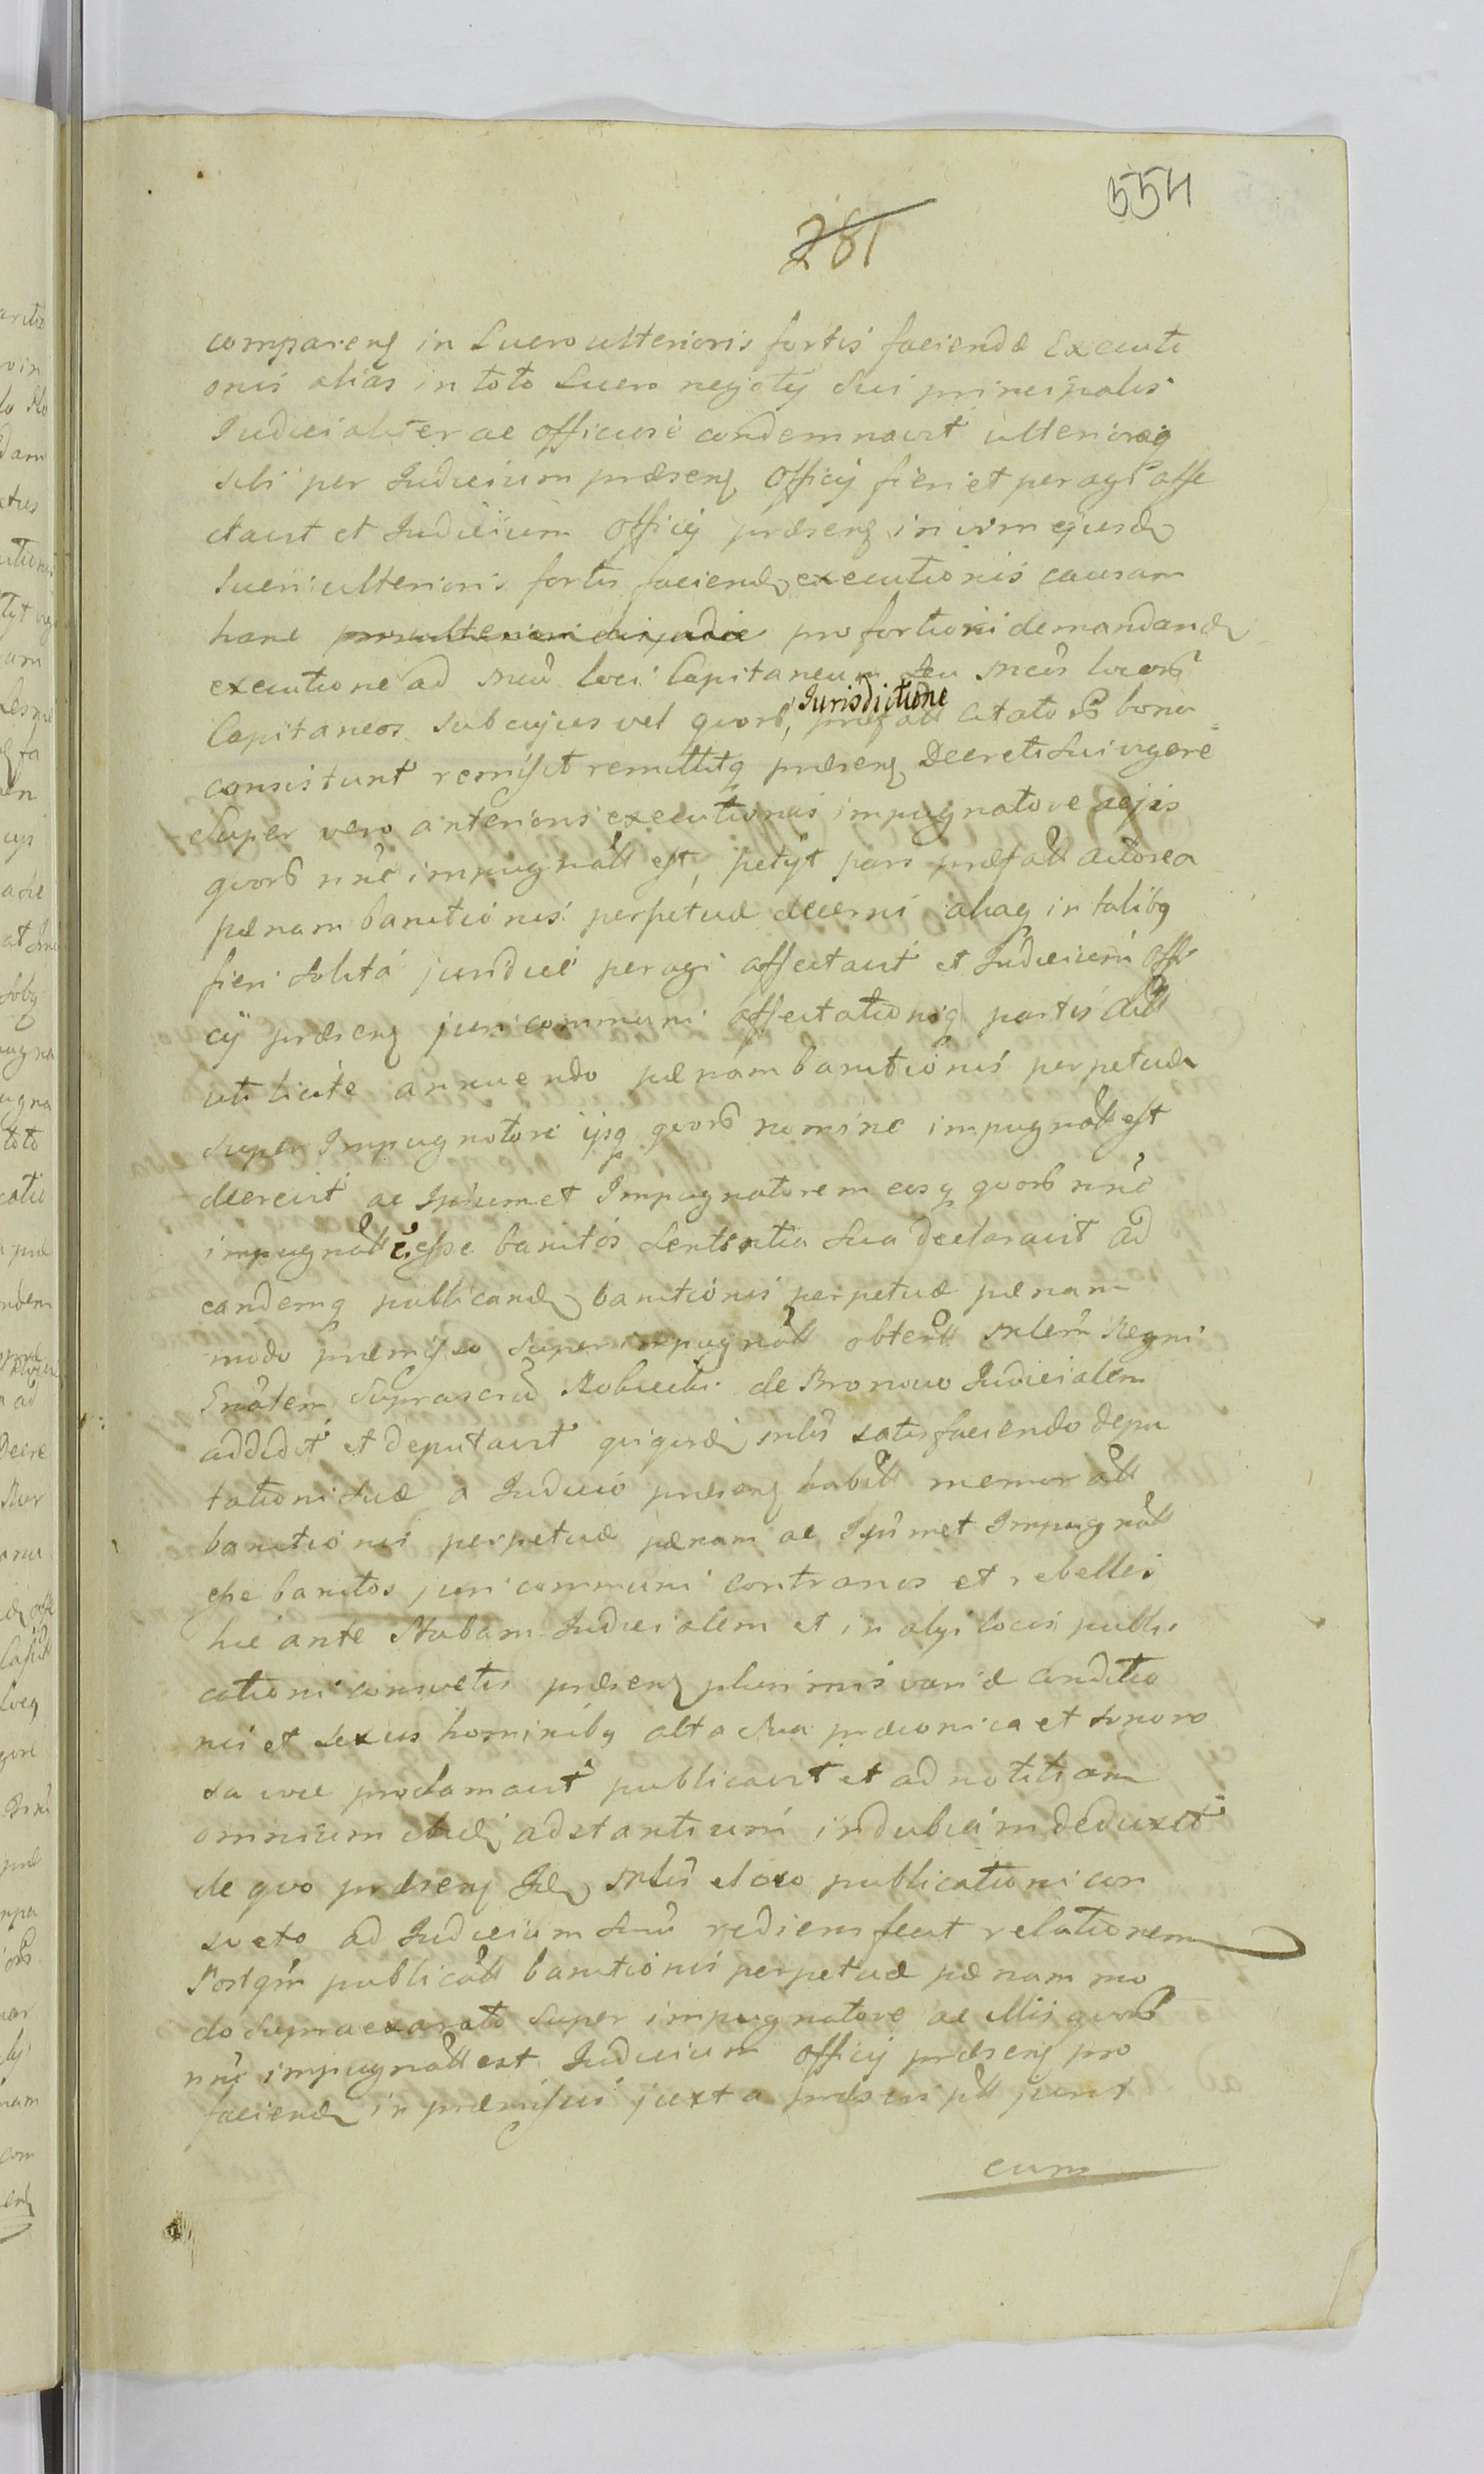 554
281
comparen in Lucro ulterioris fortis faciendæ Executi
onis alias in toto Lucro negotÿ sui principalis
Judicialiter ac officiose condemnavit ulterioraq
sibi per Judicium præsens Officÿ fieri et peragi affe
ctavit et Judicium Officÿ præsens in vim ejusd
Lucri ulterioris fortis faciend executionis causam
hanc pro fortiori demandand
executione ad loci Capitaneum seu locorb
Capitaneos sub cujus vel quorb, Jurisdictione præfatt Citatorb bona
consistunt remisit remittitq præsen Decreti sui vigore
Super vero anterioris executionis impugnatore aejis
quorb nne impugnatt est, petÿt pars præfatt actorea
pænam banitionis perpetuæ decerni aliaq in talibq
fieri solita juridice peragi affectavit et Judicium offi
cÿ præsens juri communi affectationiq partis
uti licite annuendo pænam banitionis perpetuæ
super Impugnatore ÿsq quorb nomine impugnatt est
decrevit ac Ipsummet Impugnatorem eosq quorb nne
impugnatt e, esse banitos Sententia sua declaravit ad
eandemq publicand banitionis perpetuæ pænam
modo præmisso super impugnatt obtent Mlem Regni
Gnalem Suprascrm de Bronowo Judicialem
addidit et deputavit quiquid mlis satisfaciendo depu
tationi suæ a Judicio præsen habitt memoratt
banitionis perpetuæ pænam ac Ipsmet Impugnatt
esse banitos juri communi contrarios et rebelles
hic ante Stubam Judicialem et in alÿs locis publi
cationi consvetis præsen plurimis variæ conditio
nis et sexus hominibq alta sua præconica et sonoro
sa voce proclamavit publicavit et ad notitiam
omnium ibid adstantium indubiam deduxit
de quo præsens Id Mlis eloco publicationi con
sveto ad Judicium suu rediens fecit relationem
Postqm publicatt banitionis perpetuæ pænam mo
do supra exarato super impugnatore ac illis quorb
nne impugnatt est Judicium Officÿ præsens pro
faciend in præmissis juxta præscriptt juris
cum